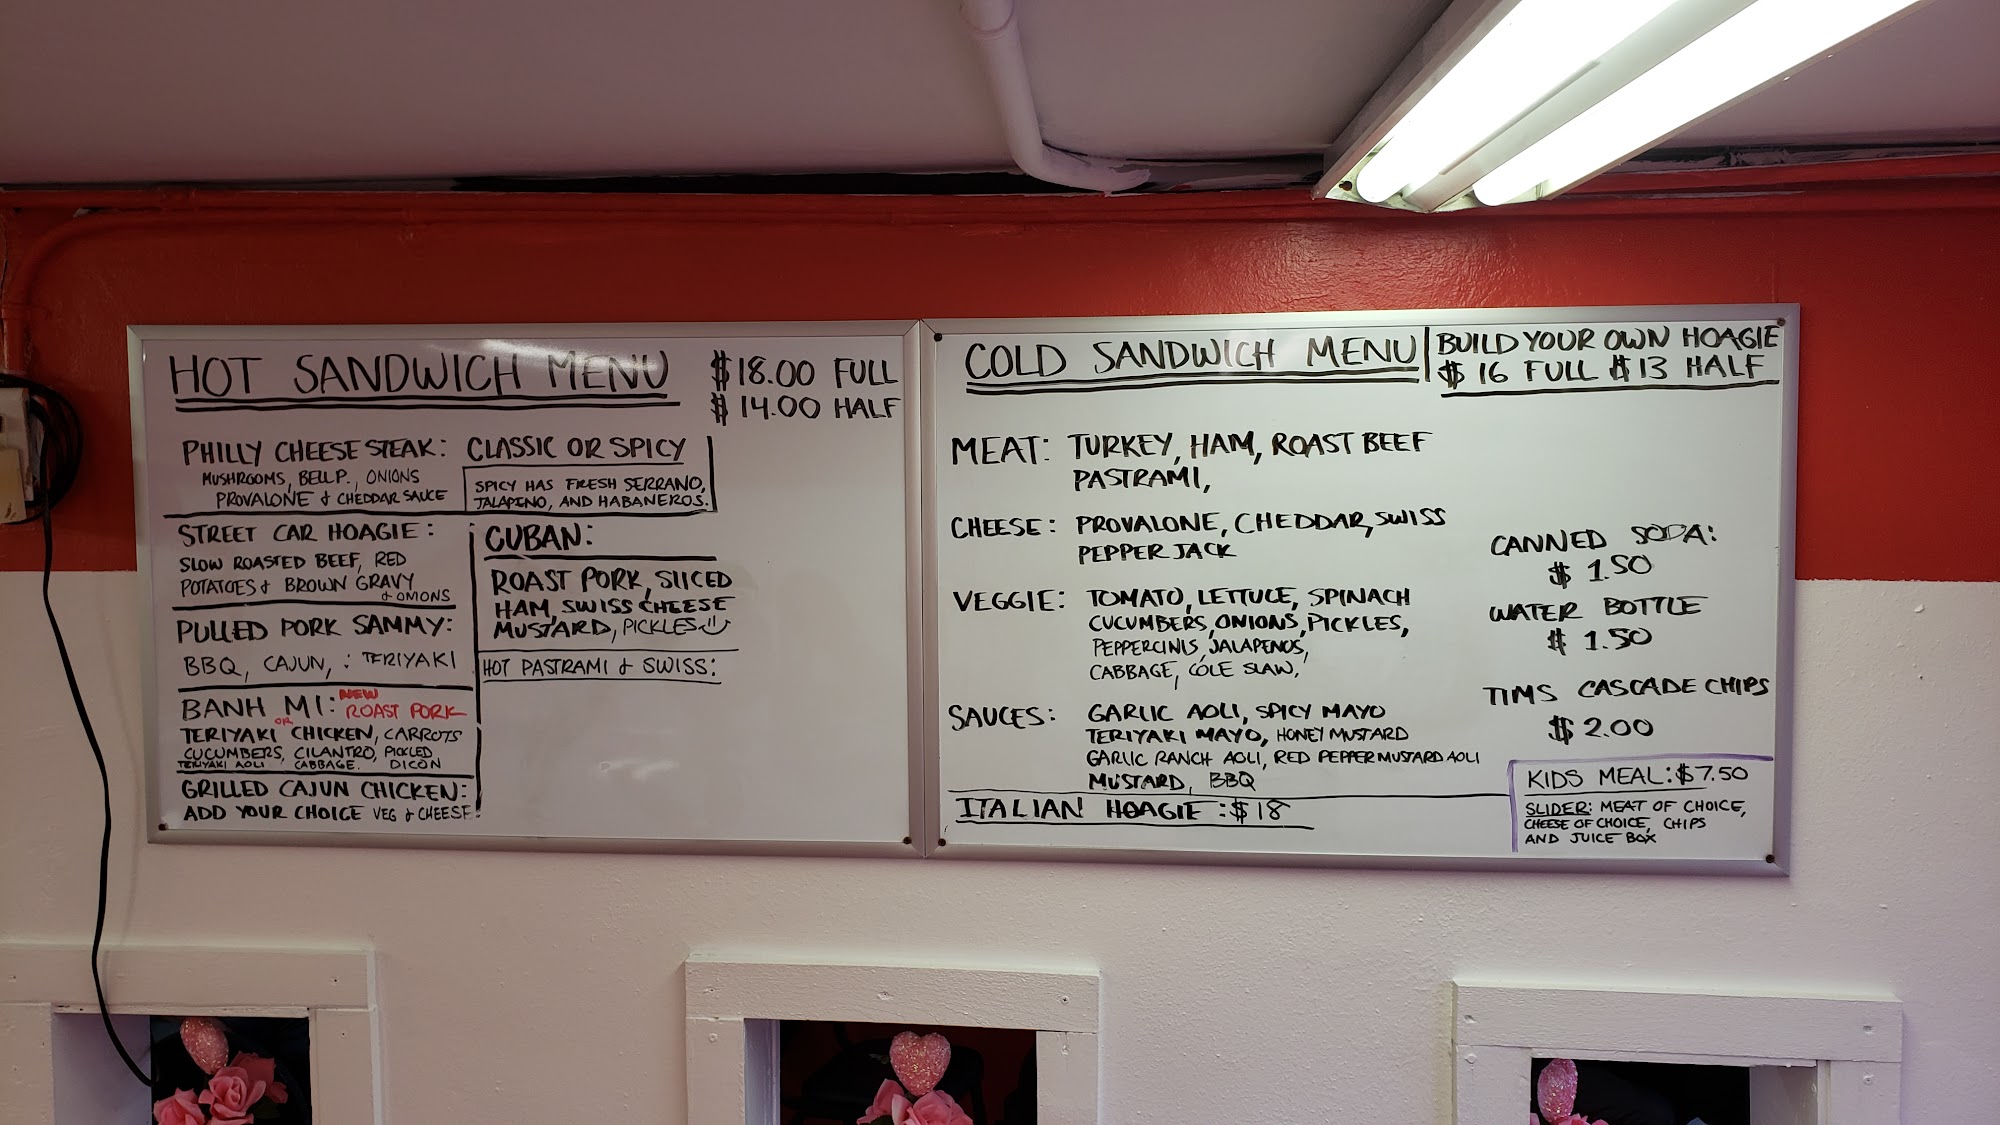 HOT SANDWICH MENU
$18.00 FULL
$14.00 HALF
PHILLY CHEESE STEAK: CLASSIC OR SPICY
MUSHROOMS, BELL P., ONIONS
PROVALONE & CHEDDAR SAUCE
SPICY HAS FRESH SERRANO,
JALAPENO, AND HABANEROS.
STREET CAR HOAGIE:
SLOW ROASTED BEEF, RED
POTATOES & BROWN GRAVY
& ONIONS
PULLED PORK SAMMY:
BBQ, CAJUN, : TERIYAKI
BANH MI: NEW
ROAST PORK
OR
TERIYAKI CHICKEN, CARROTS
CUCUMBERS, CILANTRO, PICKLED
TERIYAKI AOLI CABBAGE. DICON
GRILLED CAJUN CHICKEN:
ADD YOUR CHOICE VEG & CHEESE
CUBAN:
ROAST PORK, SLICED
HAM, SWISS CHEESE
MUSTARD, PICKLES
HOT PASTRAMI & SWISS:
COLD SANDWICH MENU
BUILD YOUR OWN HOAGIE
$16 FULL $13 HALF
MEAT: TURKEY, HAM, ROAST BEEF
PASTRAMI,
CHEESE: PROVALONE, CHEDDAR, SWISS
PEPPER JACK
VEGGIE: TOMATO, LETTUCE, SPINACH
CUCUMBERS, ONIONS, PICKLES,
PEPPERCINIS, JALAPENOS,
CABBAGE, COLE SLAW,
SAUCES: GARLIC AOLI, SPICY MAYO
TERIYAKI MAYO, HONEY MUSTARD
GARLIC RANCH AOLI, RED PEPPER MUSTARD AOLI
MUSTARD, BBQ
ITALIAN HOAGIE: $18
CANNED SODA:
$1.50
WATER BOTTLE
$1.50
TIMS CASCADE CHIPS
$2.00
KIDS MEAL: $7.50
SLIDER: MEAT OF CHOICE,
CHEESE OF CHOICE, CHIPS
AND JUICE BOX